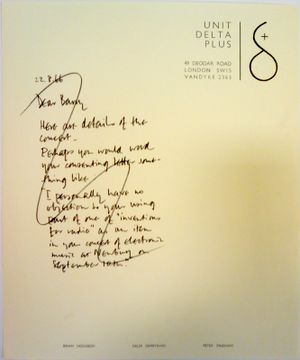 UNIT
DELTA
PLUS
49 DEODAR ROAD
LONDON SW15
VANDYKE 2363
22.8.66
Dear Barry
Here are details of the
concert.
Perhaps you would word
your consenting letter some-
thing like
I personally have no
objection to your using
part of one of "inventions
for radio" as an item
in your concert of electronic
music at Newbury on
September 10th"
BRIAN HODGSON
DELIA DERBYSHIRE
PETER ZINOVIEFF